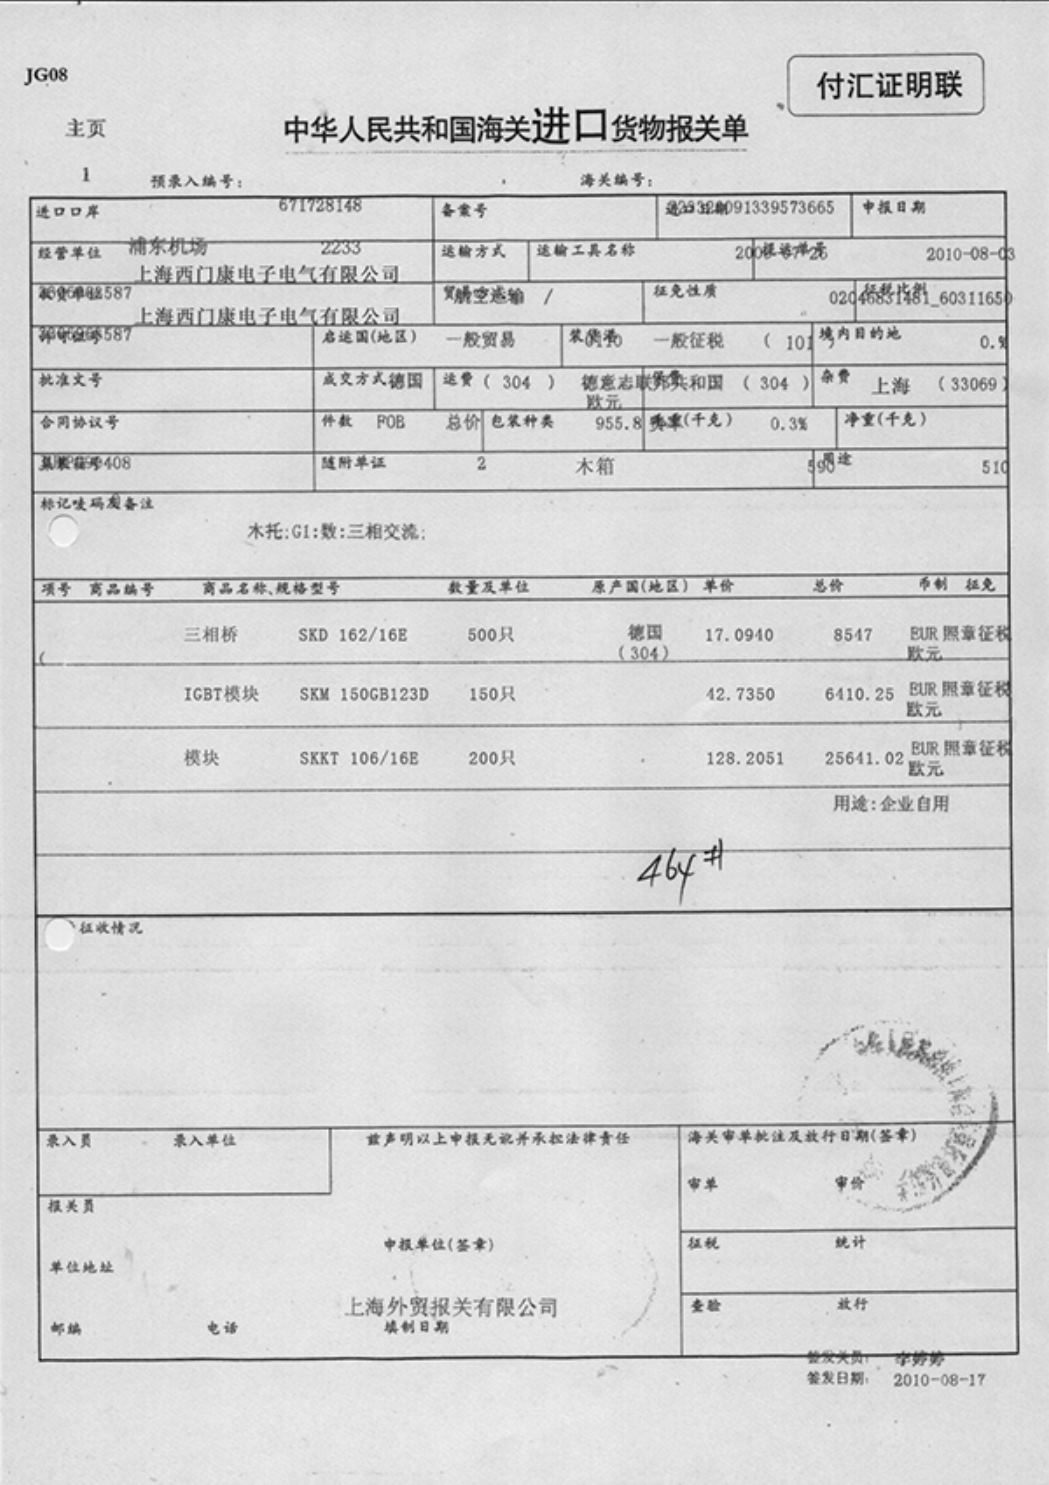 JG08
付汇证明联
主页
中华人民共和国海关进口货物报关单
1
预录入编号:
海关编号:
进口口岸 671728148 备案号 申报日期
经营单位 浦东机场 2233 运输方式 运输工具名称 2010-08-03
上海西门康电子电气有限公司
航空运输 / 征免性质 征税比例 02046831481_60311650
上海西门康电子电气有限公司
启运国(地区) 一般贸易 装货港 一般征税 ( 101 ) 境内目的地
批准文号 成交方式 德国 运费 ( 304 ) 德意志联邦共和国 ( 304 ) 杂费 上海 (33069)
欧元
合同协议号 件数 FOB 总价 包装种类 955.8 毛重(千克) 0.3% 净重(千克)
随附单证 2 木箱 590 用途 510
标记唛码及备注
木托;G1:数:三相交流;
项号 商品编号 商品名称、规格型号 数量及单位 原产国(地区) 单价 总价 币制 征免
三相桥 SKD 162/16E 500只 德国 17.0940 8547 EUR 照章征税
( (304) 欧元
IGBT模块 SKM 150GB123D 150只 42.7350 6410.25 EUR 照章征税
欧元
模块 SKKT 106/16E 200只 128.2051 25641.02 EUR 照章征税
欧元
用途:企业自用
464#
征收情况
录入员 录入单位 兹声明以上申报无讹并承担法律责任 海关审单批注及放行日期(签章)
审单 审价
报关员
申报单位(签章) 征税 统计
单位地址
上海外贸报关有限公司 查验 放行
邮编 电话 填制日期
签发关员: 李婷婷
签发日期: 2010-08-17